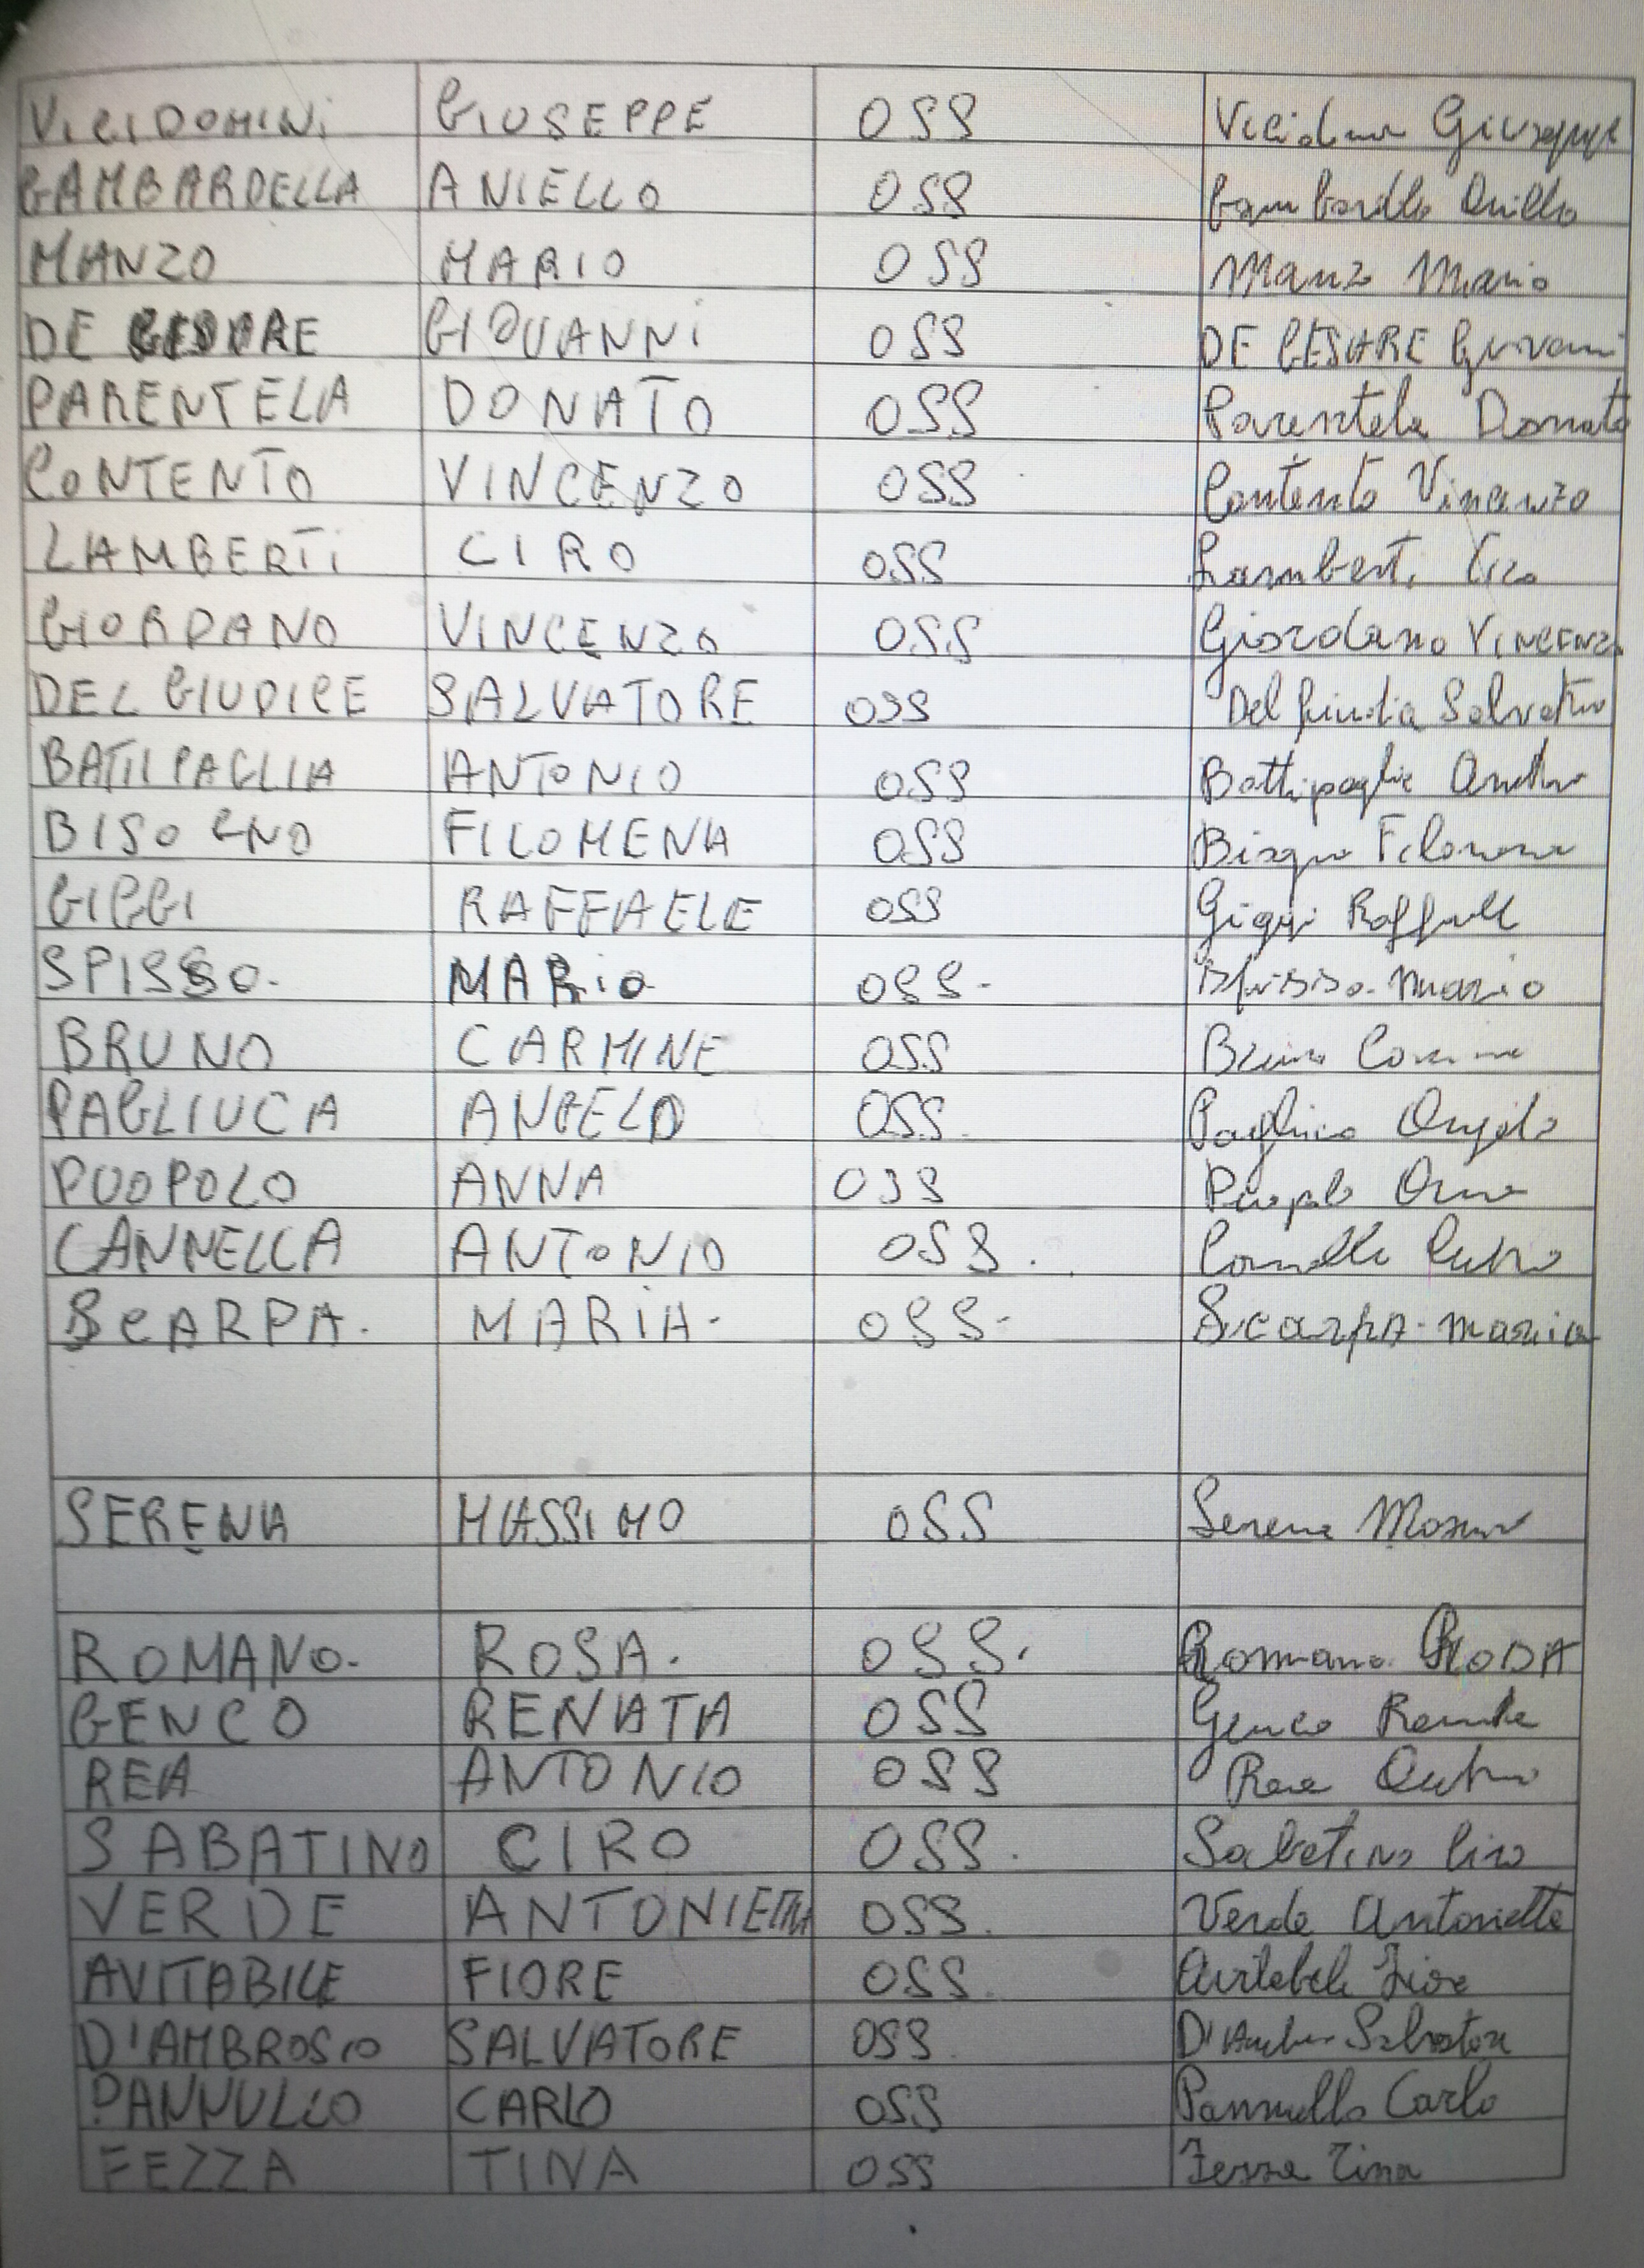 VICIDOMINI GIUSEPPE OSS Giuseppe
GAMBARDELLA ANIELLO OSS
MANZO MARIO OSS Manzo Mario
DE CESARE GIOVANNI OSS DE CESARE Giovanni
PARENTELA DONATO OSS Parentela Donato
CONTENTO VINCENZO OSS Contento Vincenzo
LAMBERTI CIRO OSS Lamberti Ciro
GIORDANO VINCENZO OSS Giordano VINCENZO
DEL GIUDICE SALVATORE OSS Del Giudice Salvatore
BATTIPAGLIA ANTONIO OSS Battipaglia
BISOGNO FILOMENA OSS Bisogno Filomena
GIGGI RAFFAELE OSS Giggi Raffaele
SPISSO. MARIO OSS. Spisso. Mario
BRUNO CARMINE OSS Bruno Carmine
PAGLIUCA ANGELO OSS. Angelo
PUOPOLO ANNA OSS Puopolo Anna
CANNELLA ANTONIO OSS.
SCARPA. MARIA. OSS. Scarpa. maria
SERENA MASSIMO OSS Serena Massimo
ROMANO. ROSA. OSS. Romano ROSA
GENCO RENATA OSS Genco Renata
REA ANTONIO OSS Rea Antonio
SABATINO CIRO OSS. Sabatino Ciro
VERDE ANTONIETTA OSS. Verde Antonietta
AVITABILE FIORE OSS. Avitabile Fiore
D'AMBROSIO SALVATORE OSS. Salvatore
PANNULLO CARLO OSS Pannullo Carlo
FEZZA TINA OSS Fezza Tina